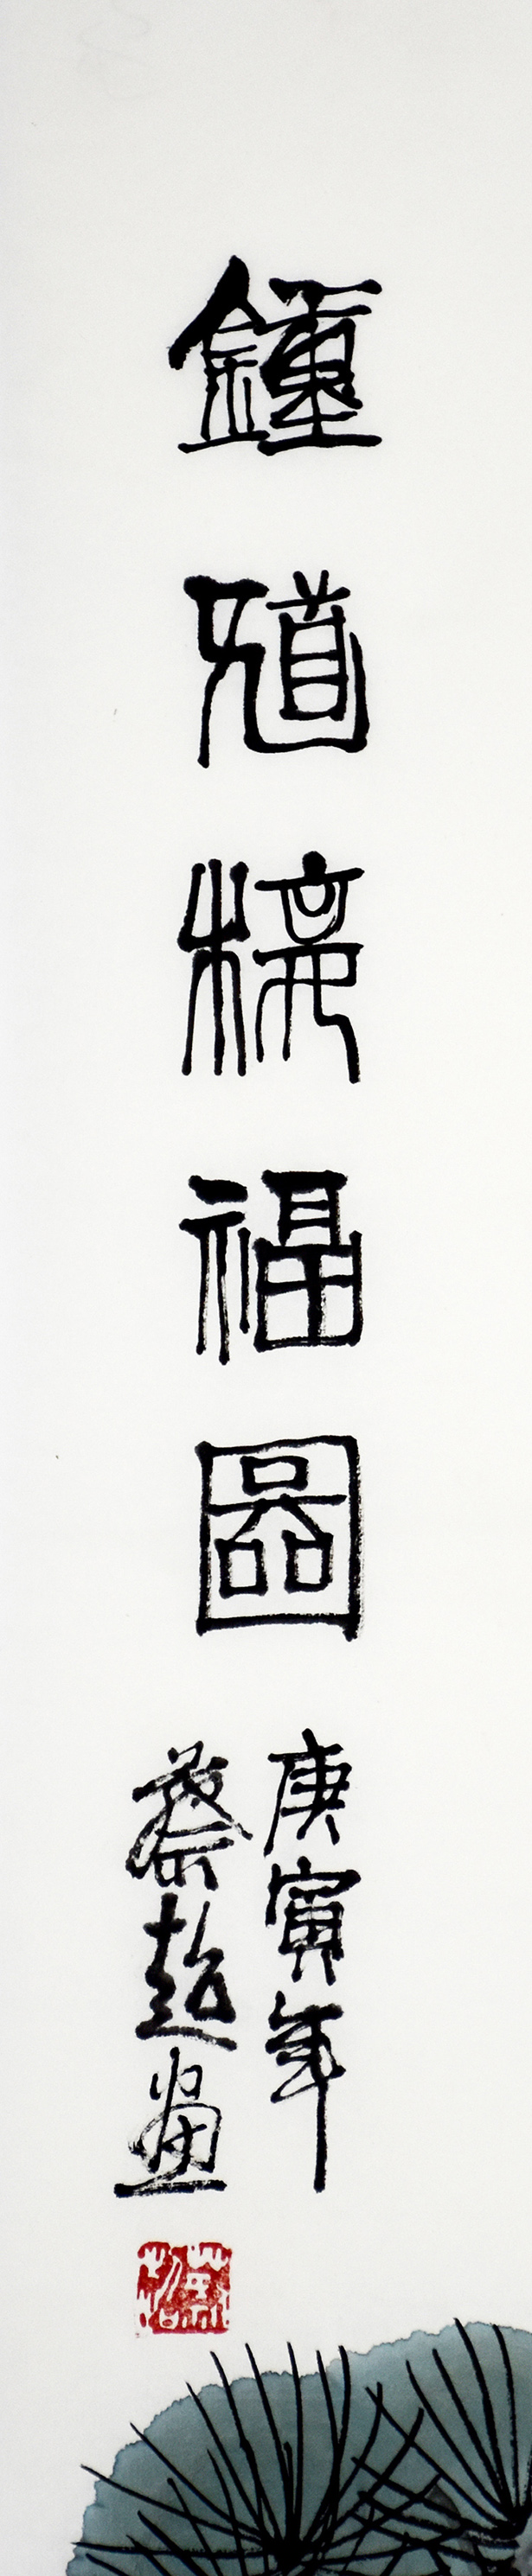 鍾馗福圖
庚寅年
蔡超畫